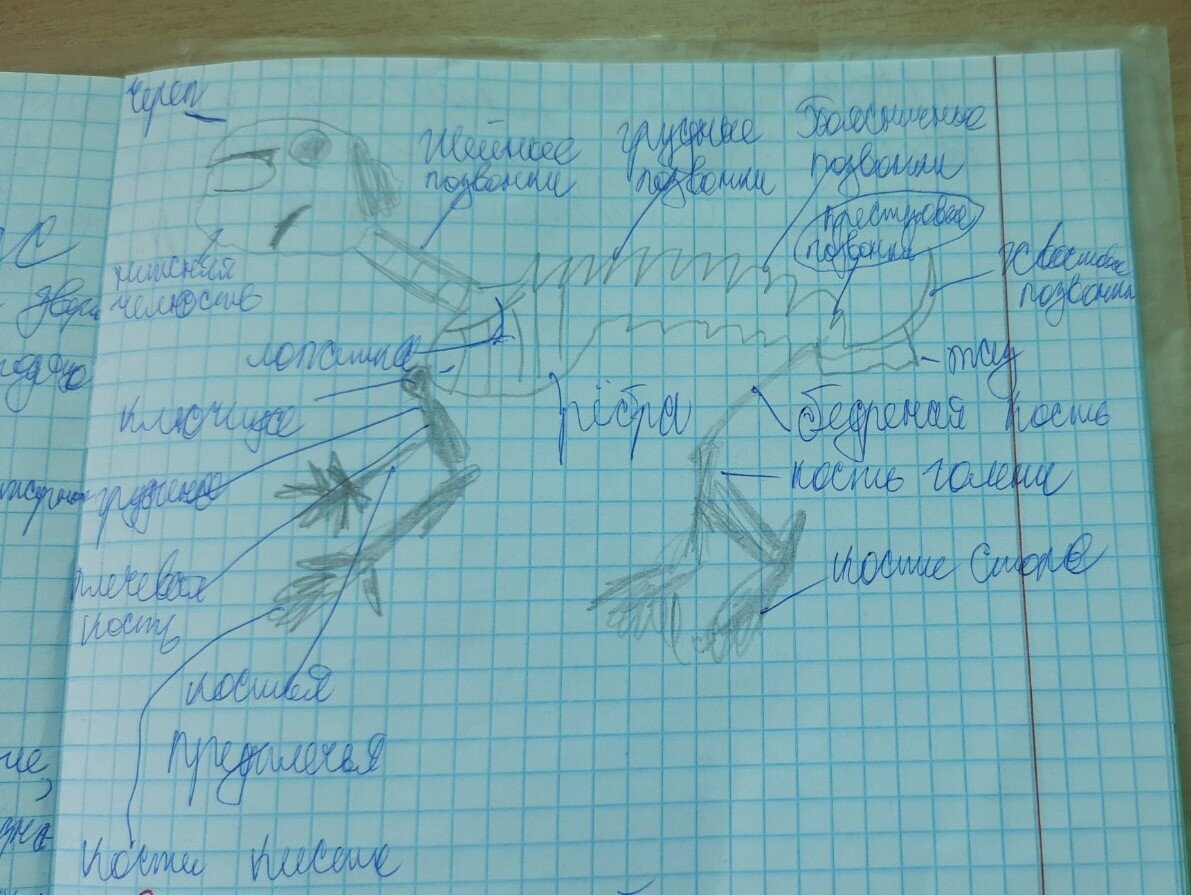 Череп
Шейные
позвонки
грудные
позвонки
Поясничные
позвонки
крестцовые
позвонки
Хвостовые
позвонки
нижняя
челюсть
лопатка
таз
ключица
рёбра
бедреная кость
грудина
кость голени
плечевая
кость
кости стопы
костья
предплечья
кости кисти